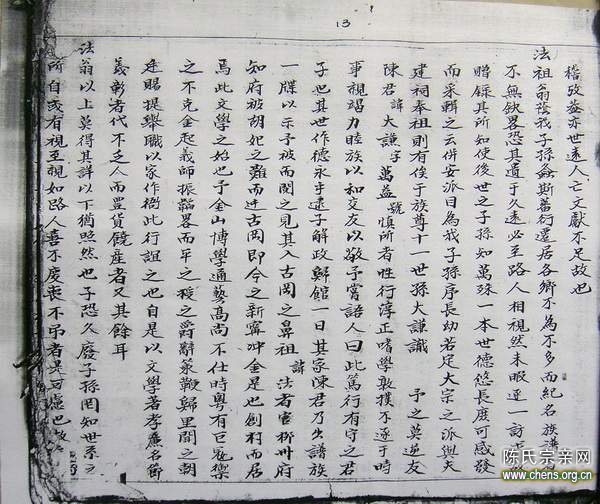 13
稽攷蓋亦世遠人亡文獻不足故也
法祖翁發我子孫螽斯蕃衍遷居各鄉不為不多而紀名族譜
不無缺畧恐其遺于久遠必至路人相視然未暇逐一訪
贈錄其所知使後世之子孫知萬殊一本世德悠長度可感發
而彙輯之云併安派目為我子孫序長幼若足大宗之派與夫
建祠奉祖則有俟于族尊十一世孫大謙識 予之莫逆友
陳君諱大謙字萬益號慎所者性行淳正嗜學敦撲不逐于時
事視竭力睦族以和交友以敬予嘗語人曰此篤行有守之君
子也其世作德永乎遠予解政歸館一日其家陳君乃出譜族
一牒以示予被而閱之見其入古岡之鼻祖諱法者官郴州府
知府被胡妃之難而迁古岡即今之新寧冲金是也創村而居
焉此文學之始也予金山博學通藝高尚不仕時粵有巨寇
之不克金起義師振韜畧而平之授之爵辭策鞭歸里聞之朝
廷賜提舉職以家作衙此行誼之也自是以文學著孝廉名節
義彰者代不乏人而置貨饒產者又其餘耳
法翁以上莫得其詳以下猶照然也予恐久廢子孫罔知世系之
所自或有視至親如路人喜不慶喪不弔者是可慮也故
陈氏宗亲网
www.chens.org.cn